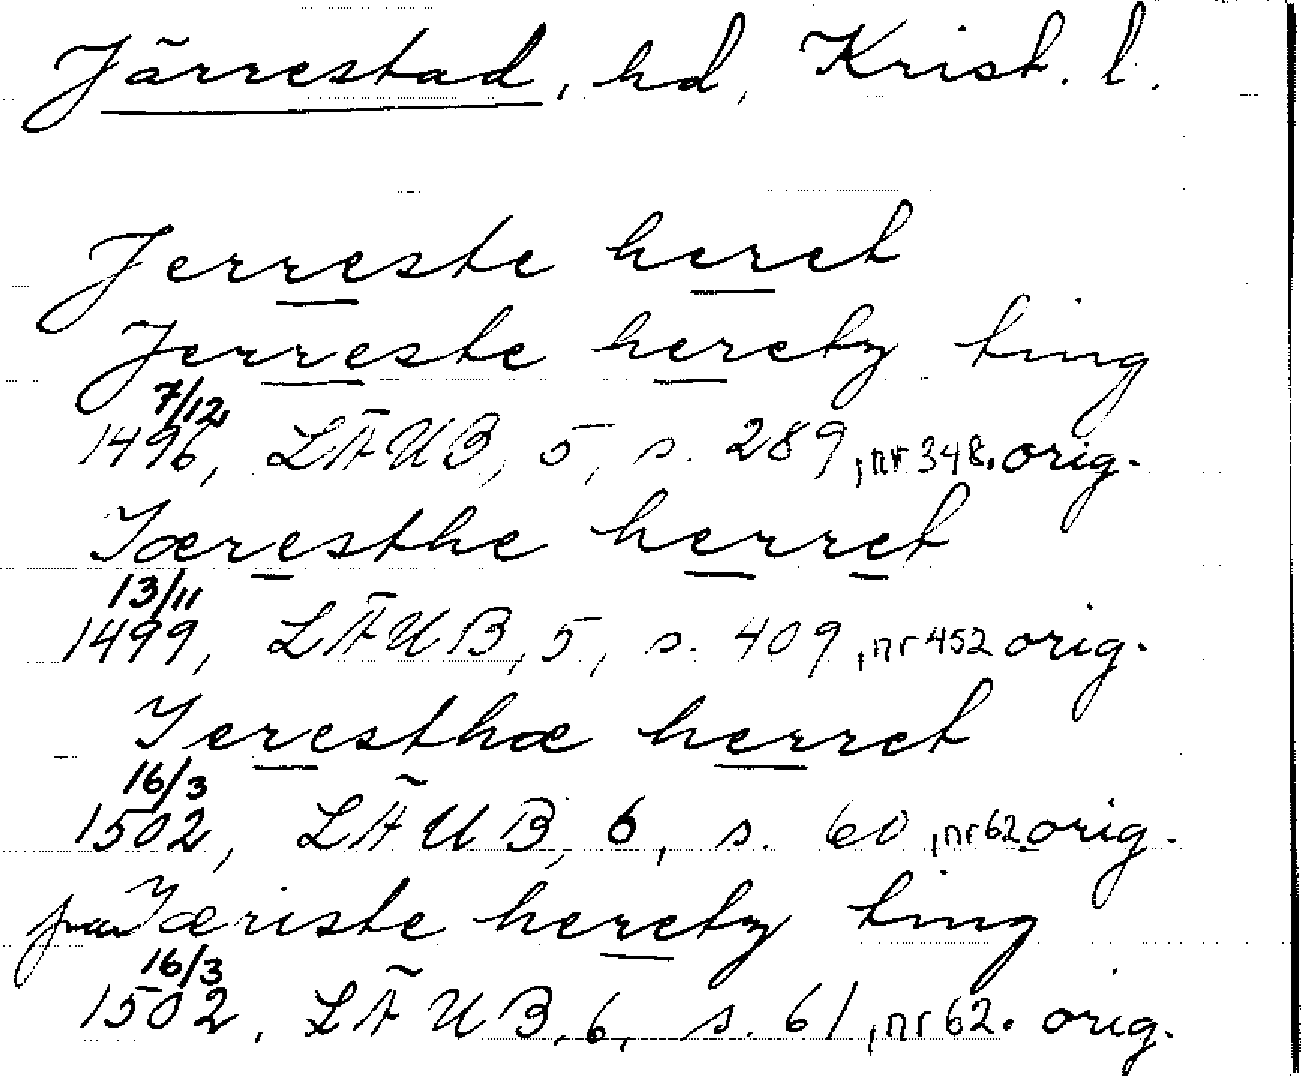 Järrestad, hd, Krist. l.
Jerreste heret
Jerreste heretz ting
7/12
1496, LÄUB, 5, s. 289, nr 348. orig.
Jæresthe herret
13/11
1499, LÄUB, 5, s. 409, nr 452 orig.
Jeresthæ herret
16/3
1502, LÄUB, 6, s. 60, nr 62. orig.
paa Jæriste heretz ting
16/3
1502, LÄUB, 6, s. 61, nr 62. orig.